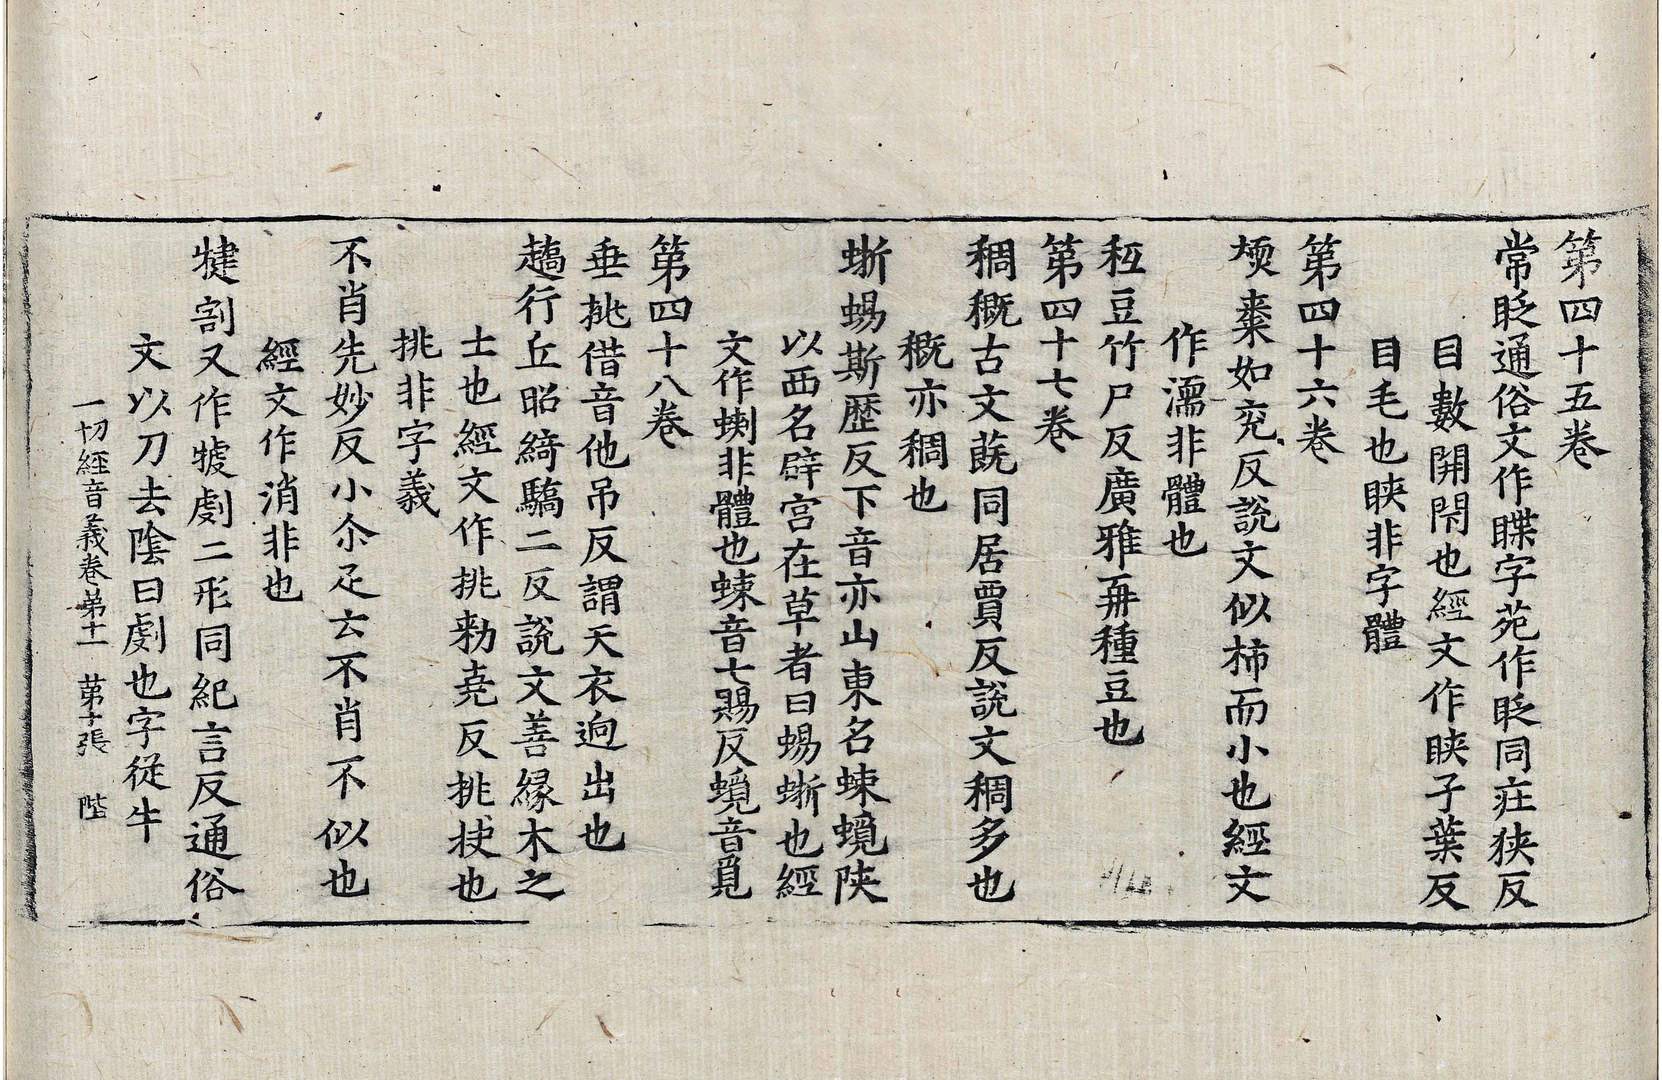 第四十五卷
常眨通俗文作䁋字苑作眨同疰狹反
目數開閇也經文作睞子葉反
目毛也睞非字體
第四十六卷
㮕棗如兖反說文似柿而小也經文
作濡非體也
秬豆竹尸反廣雅再種豆也
第四十七卷
稠穊古文蔇同居賈反說文稠多也
穊亦稠也
蜥蜴斯歷反下音亦山東名蝀蟯陝
以西名辟宮在草者曰蜴蜥也經
文作蝲非體也蝀音七賜反蟯音覓
第四十八卷
垂挑借音他吊反謂天衣逈出也
趫行丘昭綺驕二反說文善緣木之
士也經文作挑勑堯反挑抉也
挑非字義
不肖先妙反小尒疋云不肖不似也
經文作消非也
犍割又作㹇劇二形同紀言反通俗
文以刀去陰曰劇也字從牛
一切經音義卷苐十一 苐十張 陛